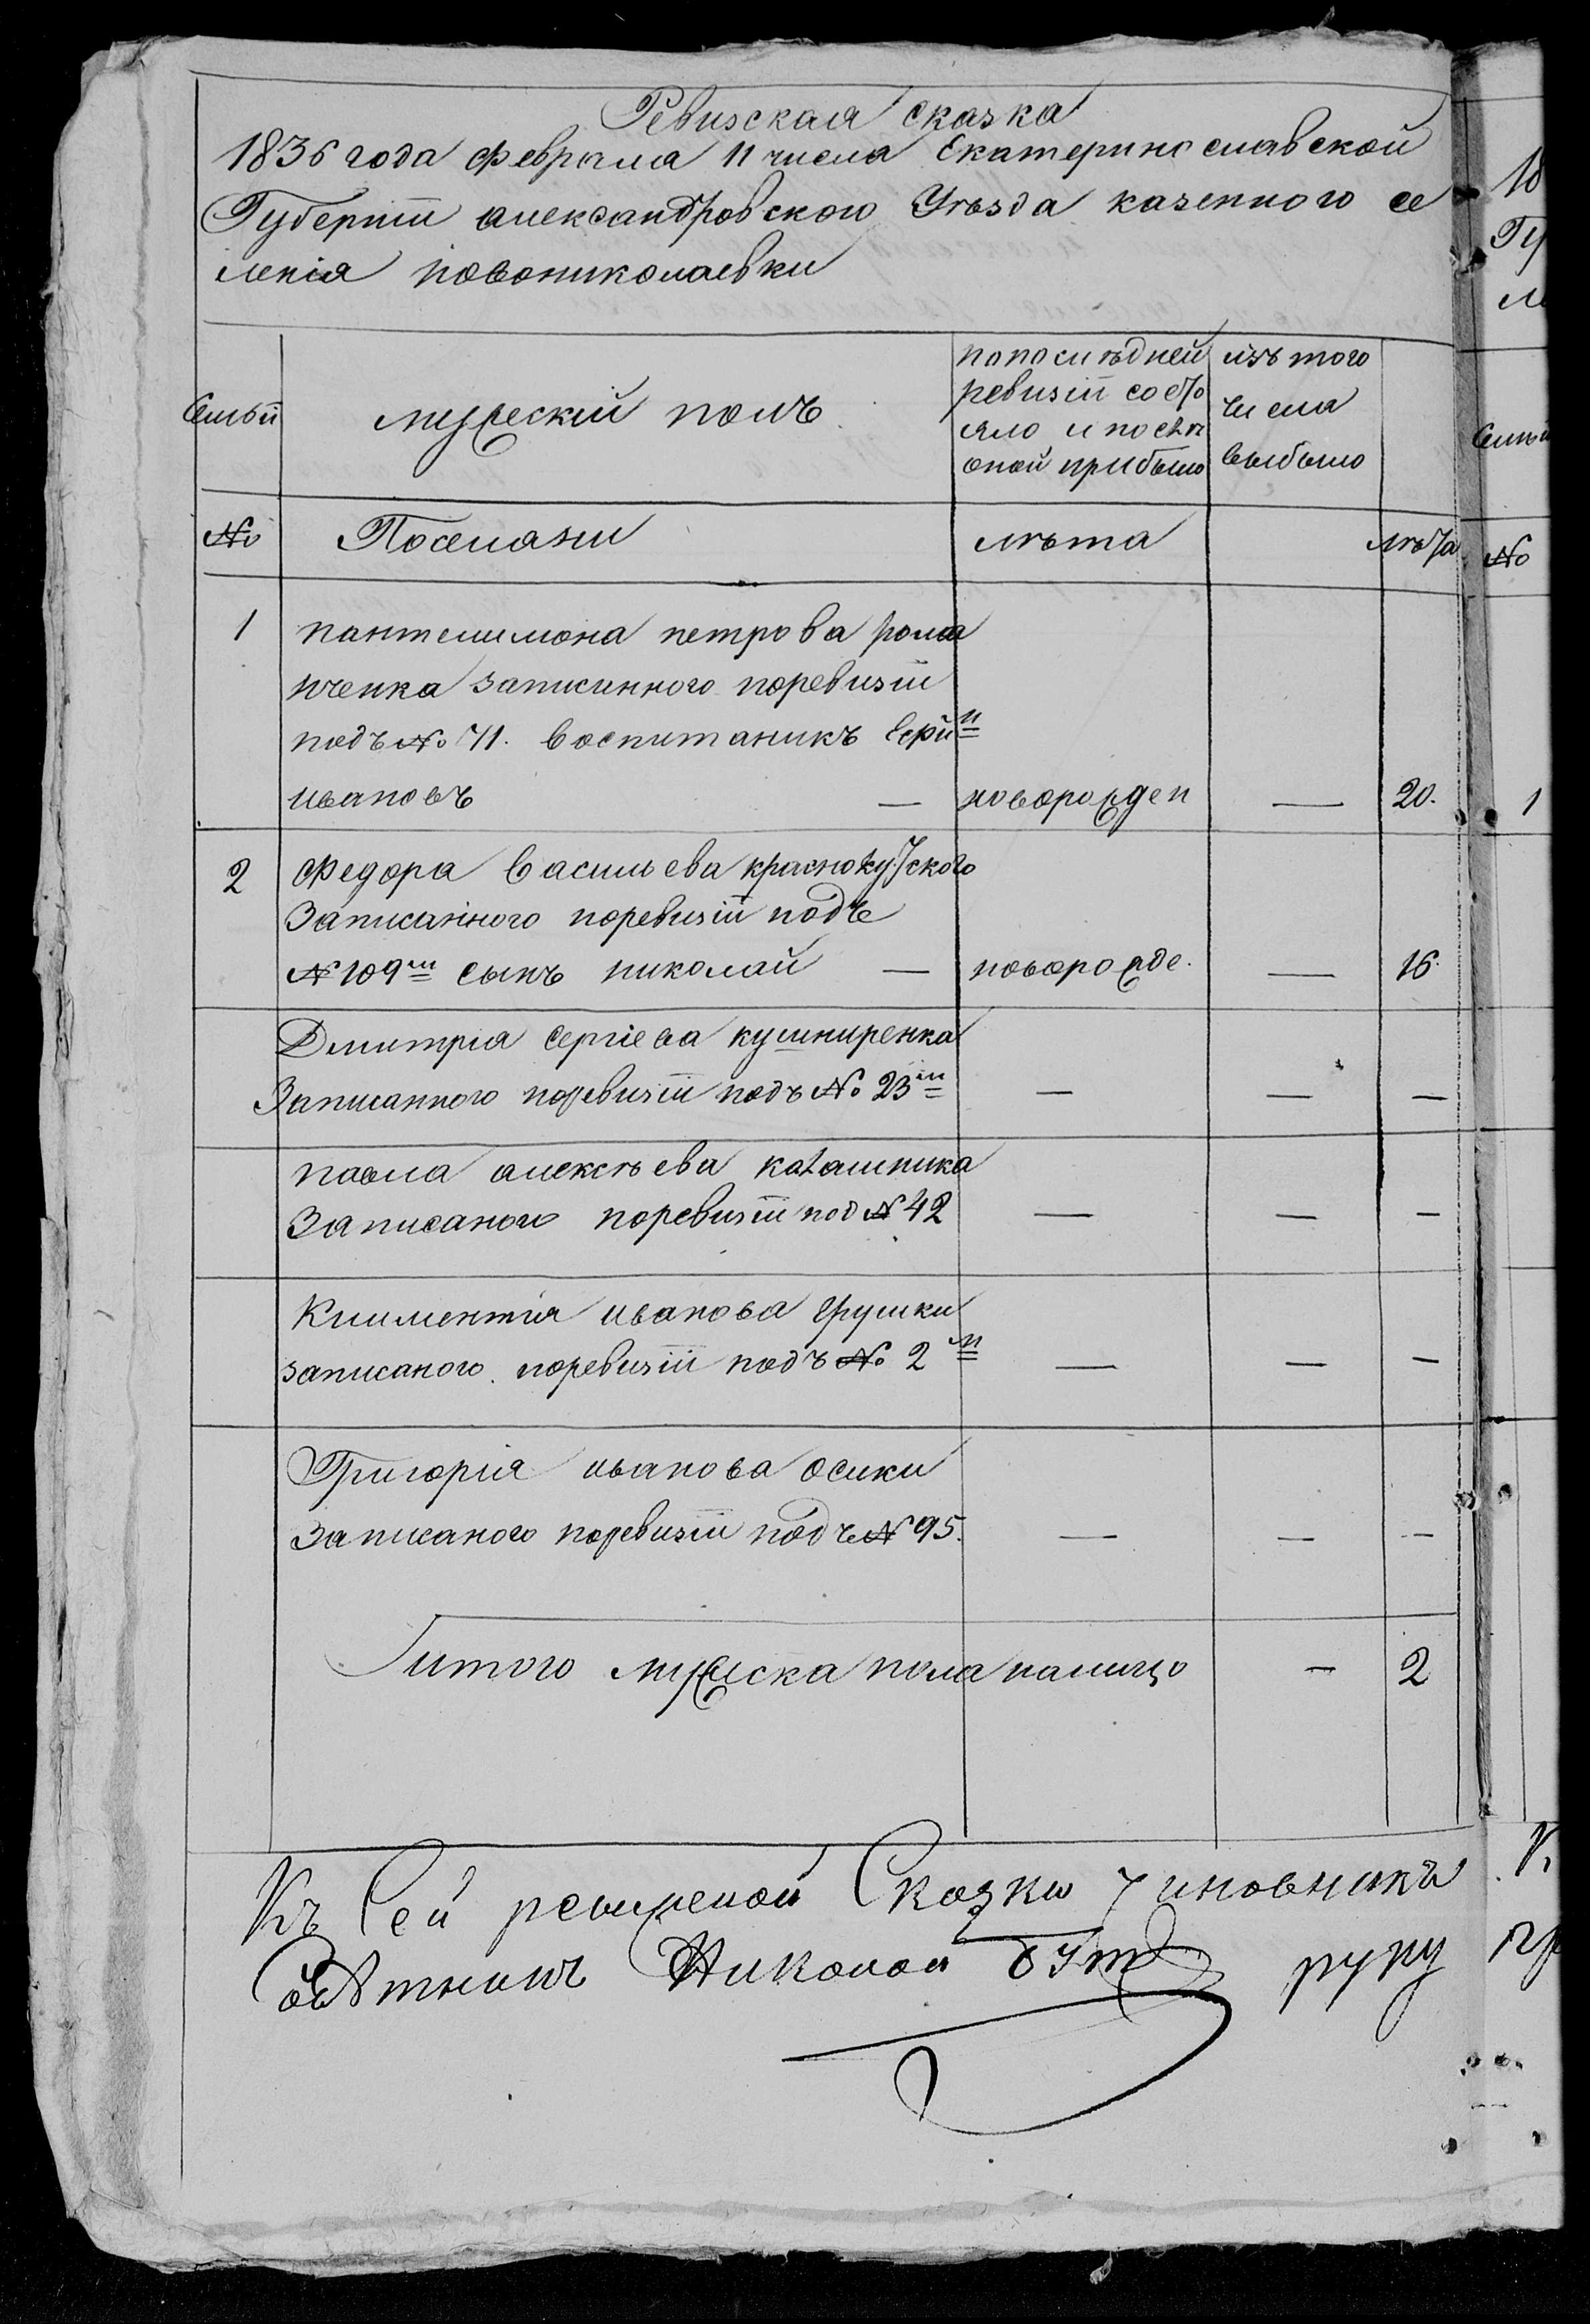 Ревизская сказка
1836 года февраля 11 числа Екатеринославской
Губерніи александровского Уѣзда казенного се
ленія новониколаевки
Семьи
мужескій полъ
попоследней
ревизіи состо
яло и после
оной прибыло
изъ того
числа
выбыло
№
Поселяни
лѣта
лѣта
1
пантелимона петрова рома
нченка записанного поревизіи
подъ № 71. воспитаникъ
ивановъ — новорожден — 20.
2
Федора Васильева краснокутского
Записанного поревизіи подъ
№ 109м сынъ николай — новорожде. — 16.
Дмитрія Сергіева кушниренка
Записанного поревизіи подъ № 23м — — —
павла алексѣева калашника
Записаного поревизіи под № 42 — — —
Климентія иванова Грушки
записаного поревизіи подъ № 2м — — —
Григорія иванова осики
Записаного поревизіи подъ № 95. — — —
итого мужеска пола налицо — 2
Къ Сей ревижской Сказки чиновникъ
Николай руку